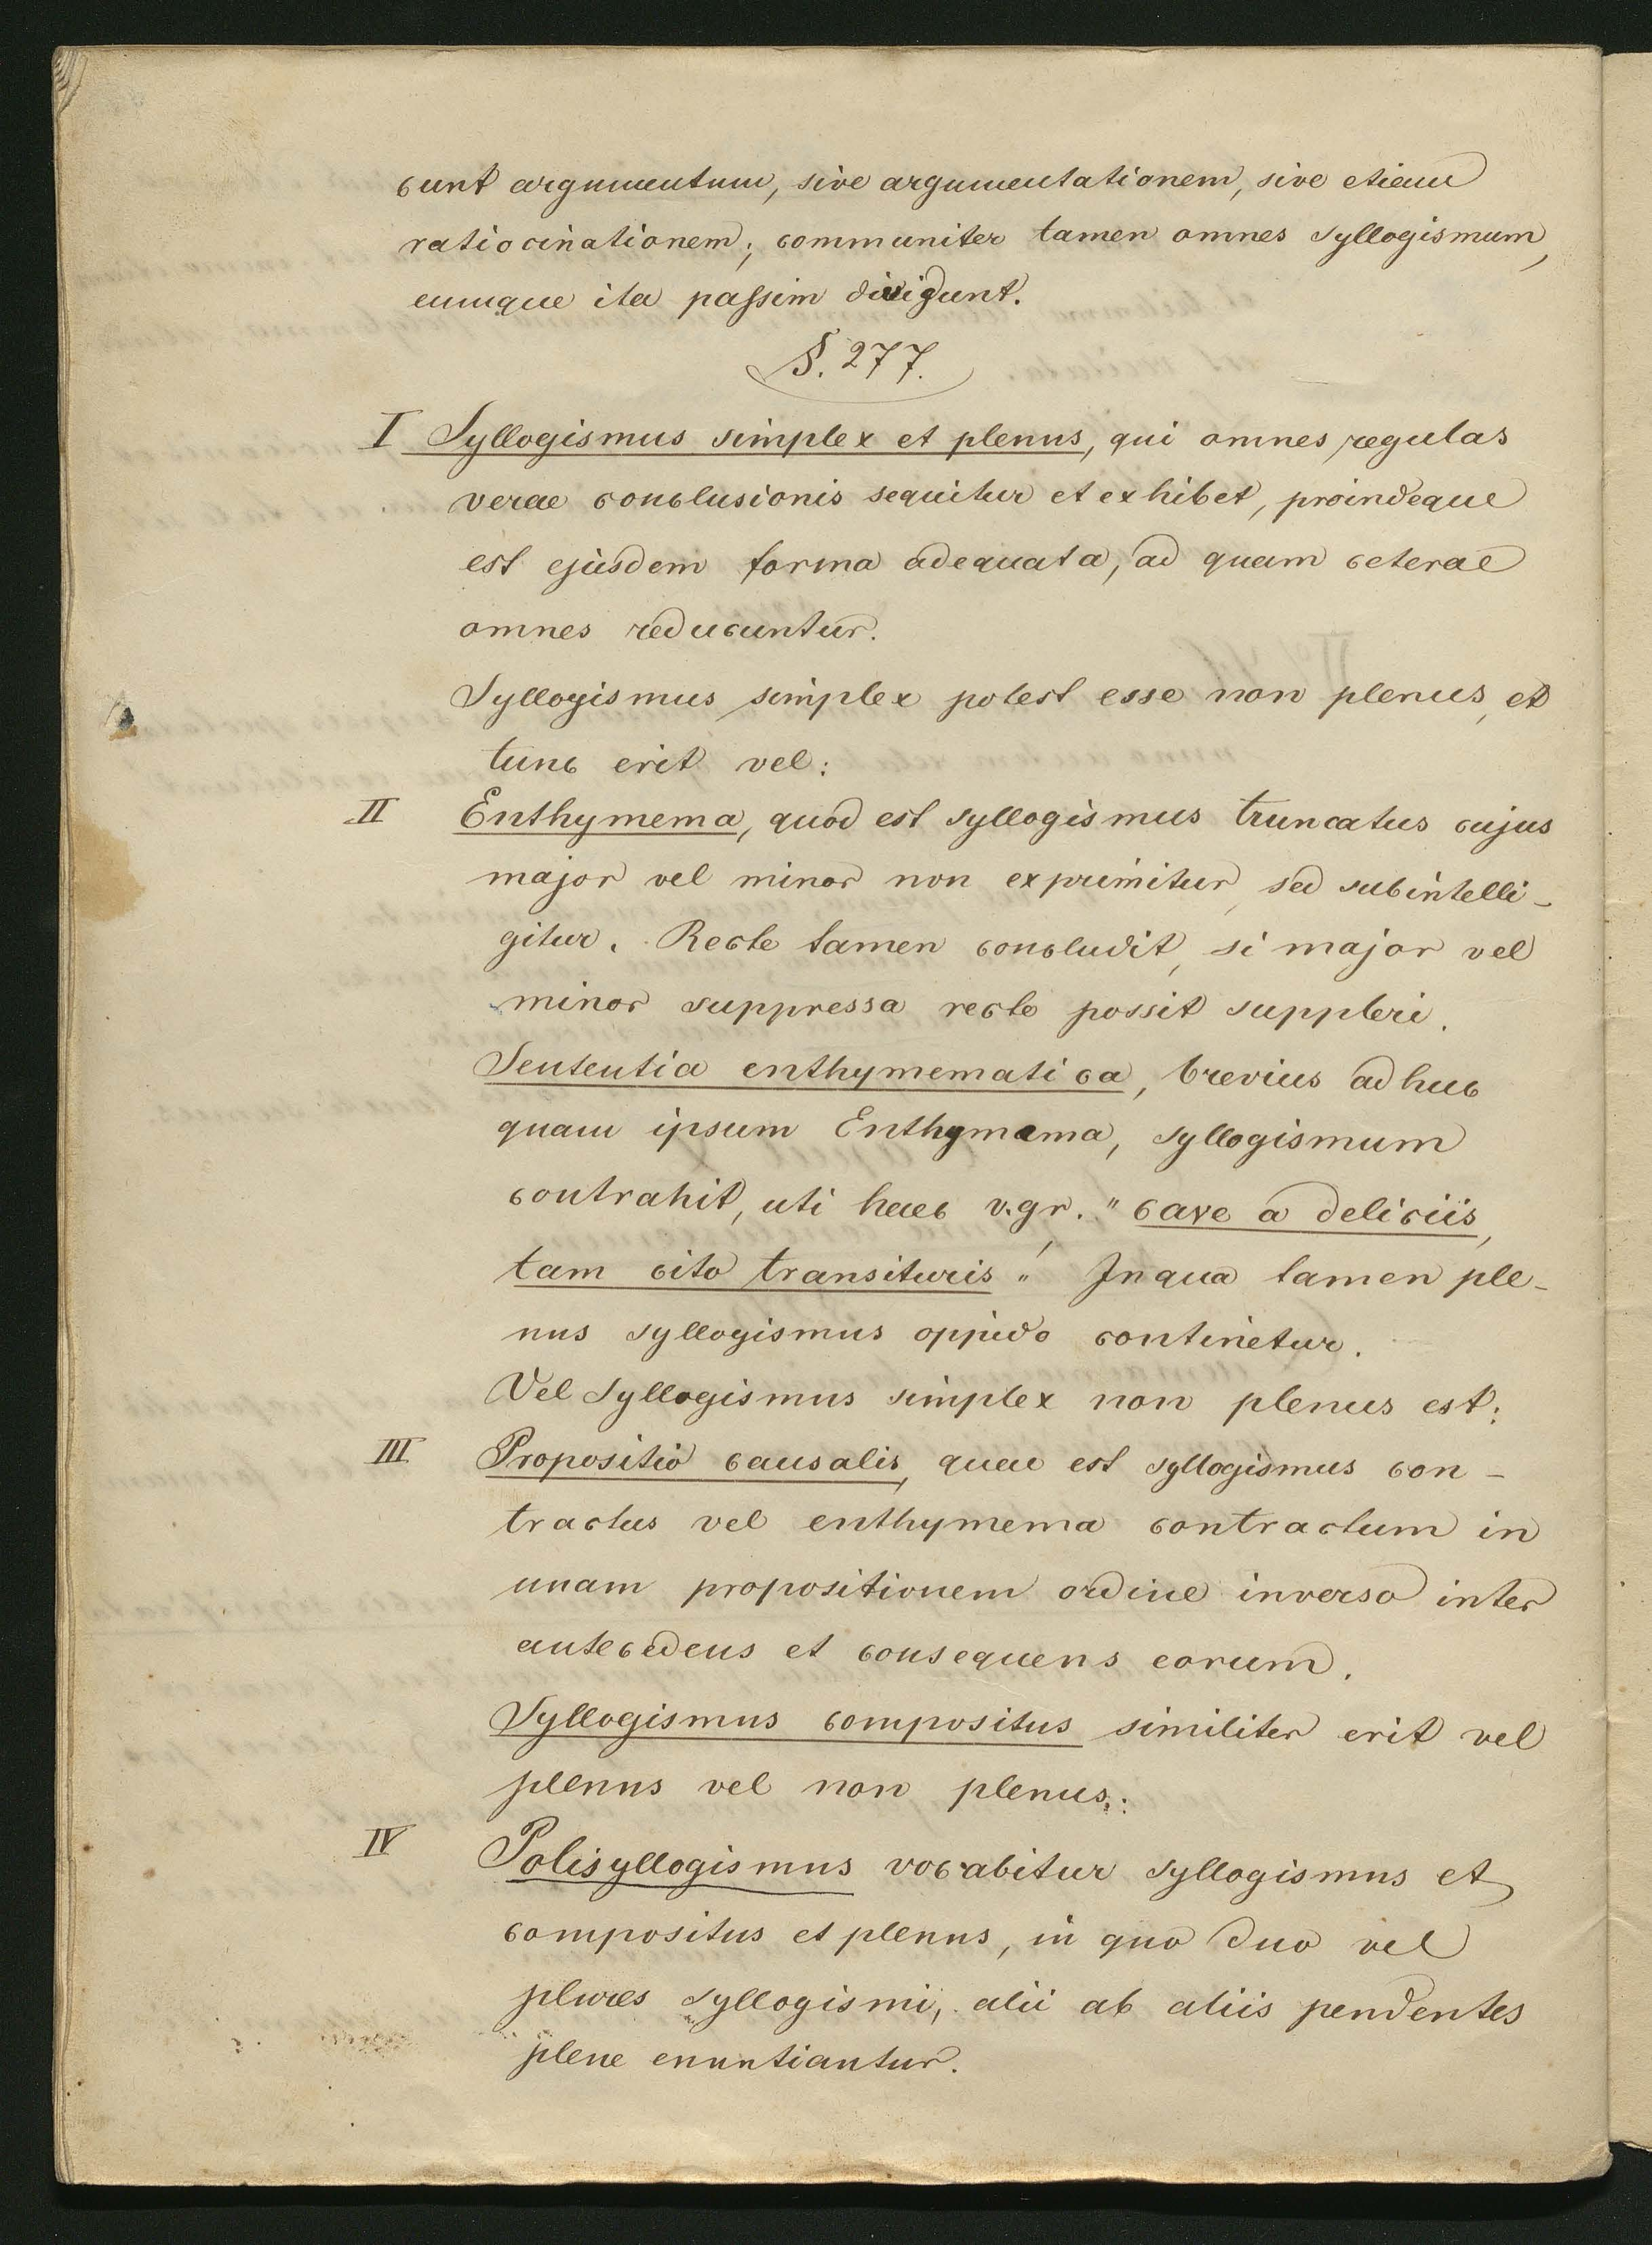 cunt argumentum, sive argumentationem, sive etiam
ratiocinationem; communiter tamen omnes syllogismum,
eumque ita passim dividunt.
§. 277.
I Syllogismus simplex et plenus, qui omnes regulas
verae conclusionis sequitur et exhibet, proindeque
est ejusdem forma adequata, ad quam ceterae
omnes reducuntur.
Syllogismus simplex potest esse non plenus, et
tunc erit vel:
II Enthymema, quod est syllogismus truncatus cujus
major vel minor non exprimitur, sed subintelli-
gitur. Recte tamen concludit, si major vel
minor suppressa recte possit suppleri.
Sententia enthymematica, brevius adhuc
quam ipsum Enthymema, syllogismum
contrahit, uti haec v.gr. "cave a deliciis,
tam cito transituris"! In qua tamen ple-
nus syllogismus oppido continetur.
Vel syllogismus simplex non plenus est:
III Propositio causalis, quae est syllogismus con-
tractus vel enthymema contractum in
unam propositionem ordine inverso inter
antecedens et consequens eorum.
Syllogismus compositus similiter erit vel
plenus vel non plenus:
IV Polisyllogismus vocabitur syllogismus et
compositus et plenus, in quo duo vel
plures syllogismi, alii ab aliis pendentes
plene enuntiantur.